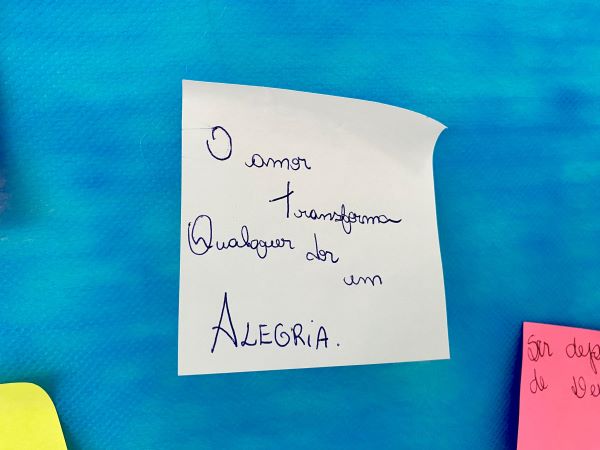 O amor
transforma
Qualquer dor
em
ALEGRIA.
Ser
de